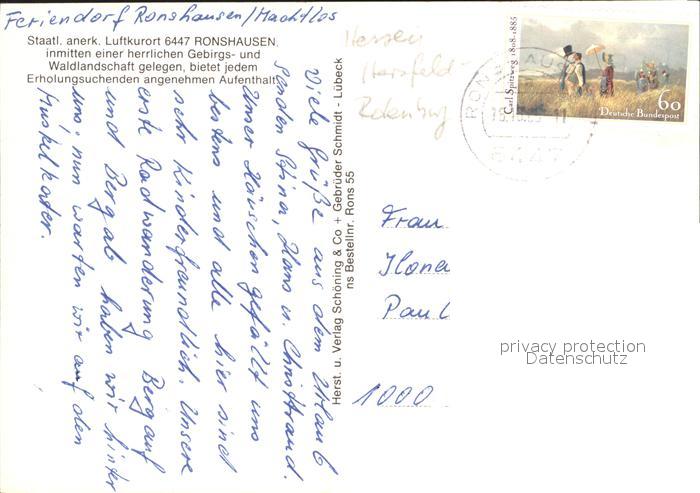 Feriendorf Ronshausen/Machtlos
Staatl. anerk. Luftkurort 6447 RONSHAUSEN,
inmitten einer herrlichen Gebirgs- und
Waldlandschaft gelegen, bietet jedem
Erholungsuchenden angenehmen Aufenthalt.
Viele Grüße aus dem Urlaub
senden Stina, Hans u. Christtraud.
Unser Häuschen gefällt uns
bestens und alle hier sind
sehr kinderfreundlich. Unsere
erste Radwanderung Bergauf
und Bergab haben wir hinter
uns: nun warten wir auf den
Muskelkater.
Herst. u. Verlag Schöning & Co + Gebrüder Schmidt - Lübeck
ns Bestellnr. Rons 55
Hessen
Hersfeld-
Rotenburg
RONSHAUSEN
6447
Carl Spitzweg 1808-1885
60
Deutsche Bundespost
Frau
Ilona
Paul
1000
privacy protection
Datenschutz